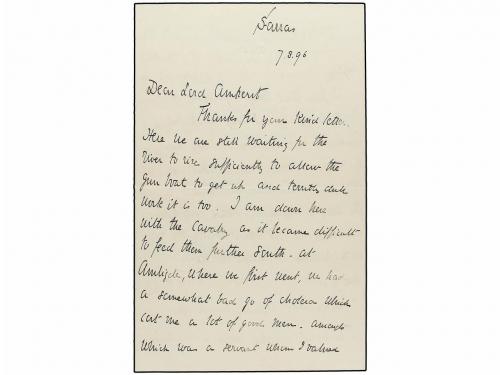 Sarras
7.8.96
Dear Lord Amherst
Thanks for your kind letter.
Here we are still waiting for the
river to rise sufficiently to allow the
gun boat to get up and terribly dull
work it is too. I am down here
with the Cavalry as it became difficult
to feed them further South. at
where we first went, we had
a somewhat bad go of cholera which
cost me a lot of good men. amongst
which was a servant whom I valued